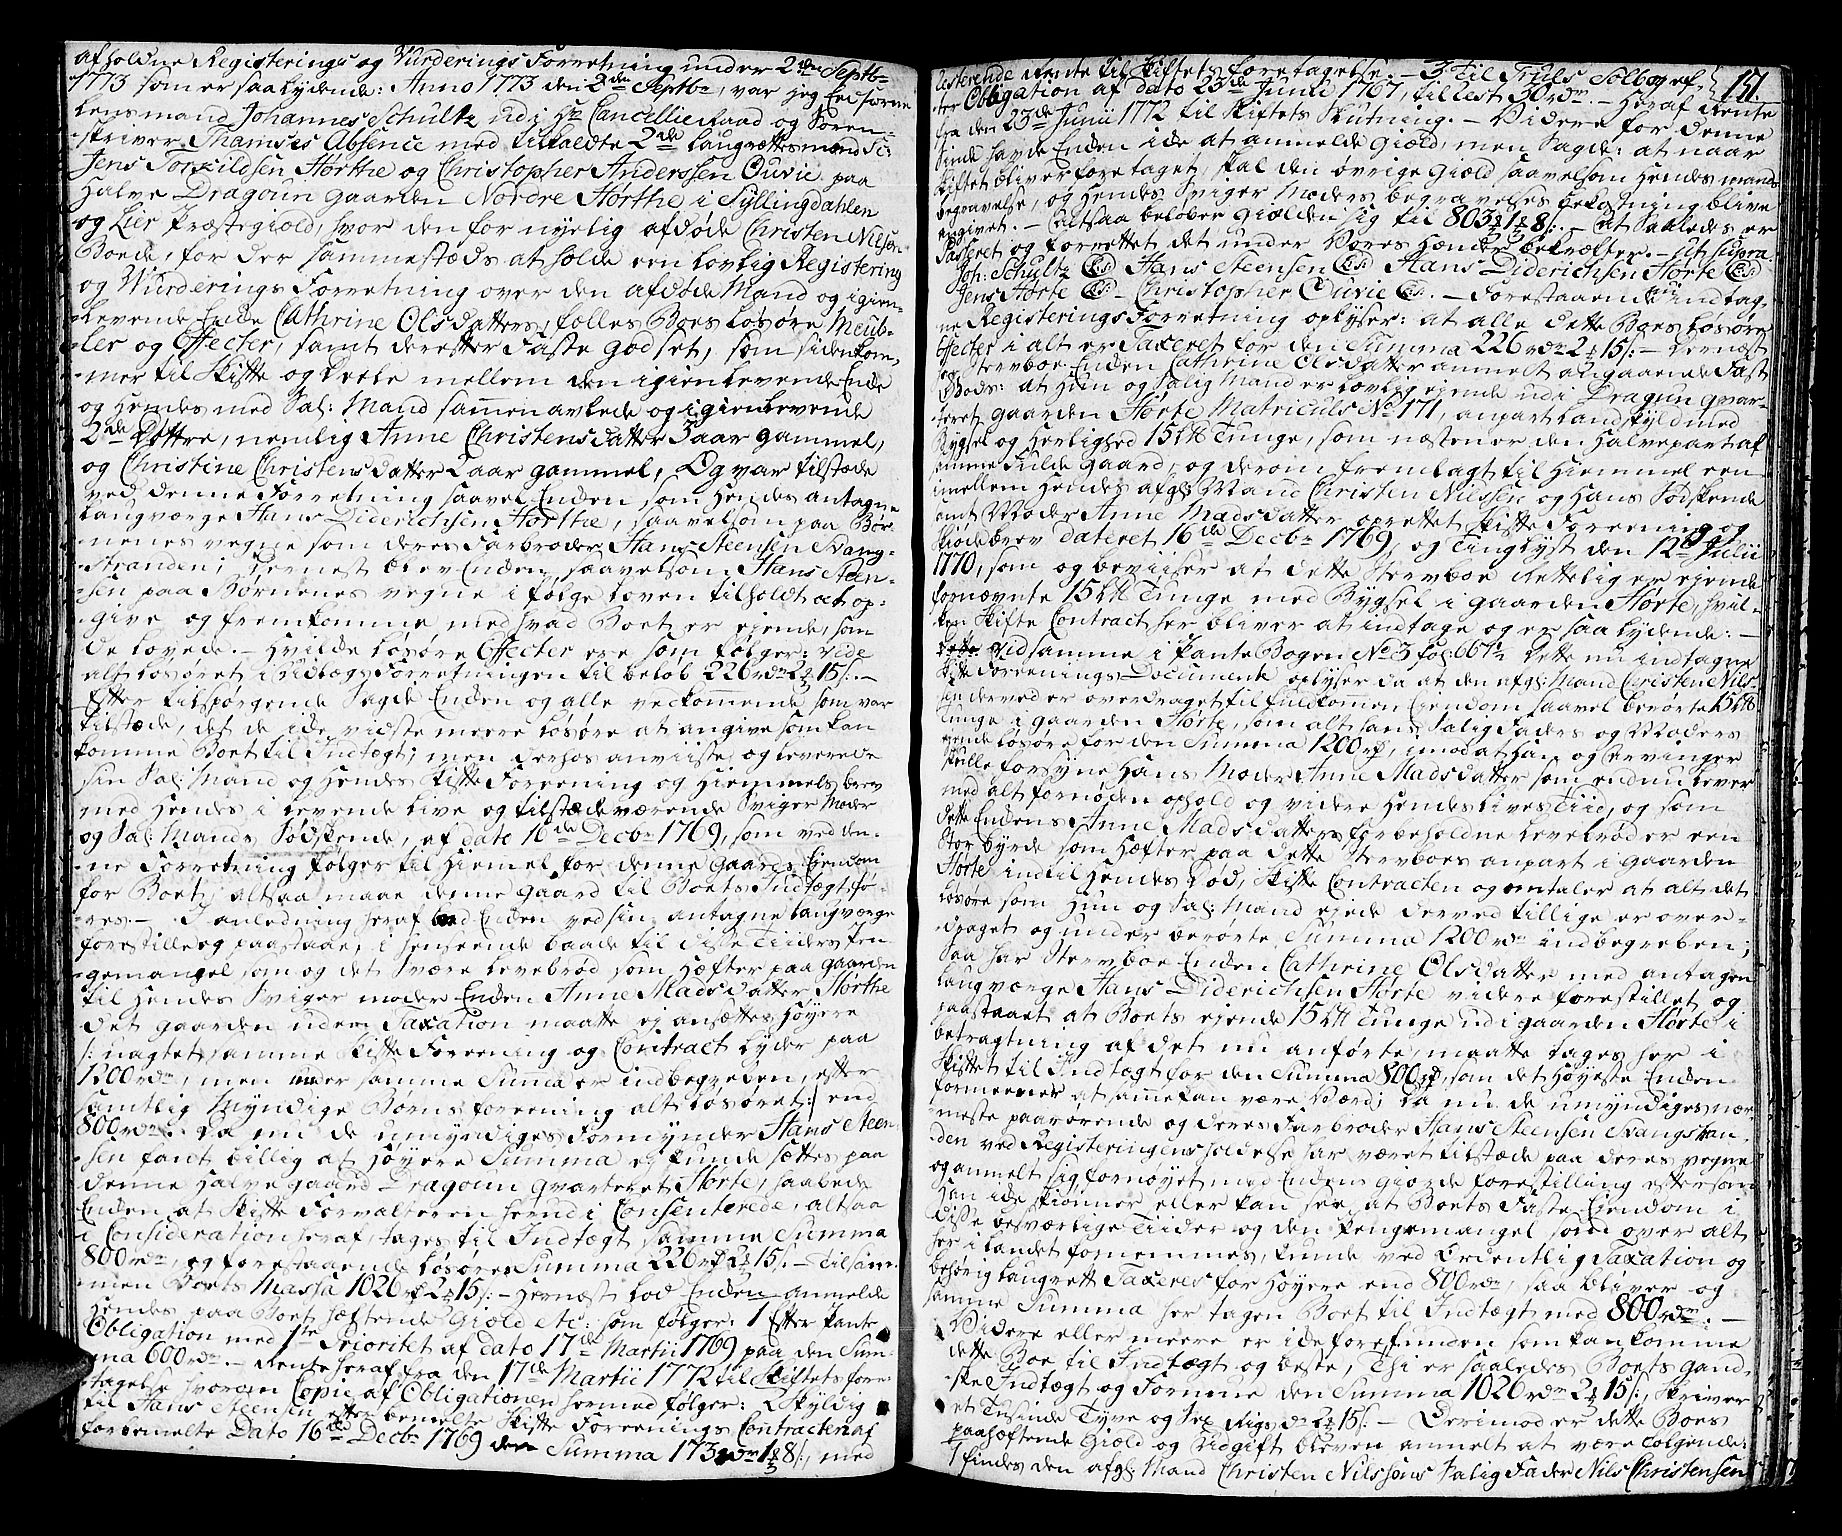 afholdne Registerings og Vurderings Forretning under 2den Septbr
1773 som er saa lydende: Anno 1773 den 2den Septbr, var jeg Eedsorne
Lensmand Johannes Schultz udi Hr Cancellie Raad og Soren-
skriver Thamses Absence med tilkaldte 2de Laugrettes mænd Sc:
Jens Torkildsen Hørthe og Christopher Anderssen Ouvie paa
Halve Dragoun Gaarden Nordre Hørthe i Syllingdahlen
og Lier Præstegiold, hvor den for nyelig afdøde Christen Nilsøn
Boede, for der sammestæds at holde een lovlig Registering
og Vurderings Forretning over den afdøde Mand og igien-
levende Enke Cathrine Olsdatters fælles Boes løsøre Meub-
ler og Effecter, samt derefter Faste Godset, som siden kom-
mer til Skifte og Deele mellem den igienlevende Enke
og Hendes med Sal: Mand sammen avlede og igienlevende
2de Døttre, nemlig Anne Christensdatter 3 aar gammel,
og Christine Christensdatter 2 aar gammel, Og var tilstæde
ved denne Forretning saavel Enken som Hendes antagne
Laugværge Hans Diderichsen Hørthe, saavelsom paa Bør-
nenes vegne som deres Farbroder Hans Steensen Svang-
stranden; dernest blev Enken saavelsom Hans Steen-
sen paa Børnenes vegne i følge Loven tilholdt at op-
give og fremkomme med hvad Boet er ejende, som
de lovede. Hvilke løsøre Effecter ere som følger: vide
alt løsøret i Udlægs Forretningen til beløb 226 rdr 2 15 s. —
Efter tilspørgende Sagde Enken og alle vedkommende som var
tilstæde, det de ike vidste meere løsøre at angive som kan
komme Boet til Indtægt; men derhos anviiste og leverede
sin Sal: Mand og Hendes Skifte Foreening og Hiemmels brev
med Hendes i levende live og tilstædeværende Sviger Moder
og Sal: Mands Sødskende, af dato 16de Decbr 1769, som ved den-
ne Forretning følger til Hiemel for denne Gaards Ejendom
for Boet; altsaa maae denne Gaard til Boets Indtægt fø-
res. — I anledning heraf Enken ved sin antagne Laugværge
forestille og paastaae, i henseende baade til disse Tiiders Pen-
gemangel som og det svære Levebrød som Hæfter paa Gaarden
til Hendes Sviger moder Enken Anne Madsdatter Hørthe
det Gaarden uden Taxation maatte ej ansættes Høyere
/: uagtet samme Skifte Foreening og Contract lyder paa
1200 rdr, men under samme Suma er indbegreben, efter
samtlig Myndige Børns foreening alt løsøret :/ end
800 rdr. Da nu de umyndiges Formynder Hans Steen-
sen fandt billig at Høyere Summa ej kunde sættes paa
denne Halve Gaard Dragoun Qvarteret Hørte, saa
Enken at Skifte Forvalteren herudi Consenterede, altsaa
i Consideration heraf, tages til Indtægt samme Summa
800 rdr, og forestaaende løsøres Summa 226 rd 2 15 s. — Tilsam-
men Boets Massa 1026 rd 2 15 s. — Hernæst lod Enken anmelde
Hendes paa Boet hæftende Giæld etc: som følger: 1 Efter Pante
Obligation med 1ste Prioritet af dato 17de Martii 1769 paa den Sum-
ma 600 rdr. — Rente heraf fra den 17de Martii 1772 til Skiftets fore-
tagelse hvoraf Copie af Obligationen hermed følger: 2 Skyldig
til Hans Steensen efter bemelte Skifte Foreenings Contract af
forbemelte Dato 16de Decbr 1769 den Summa 173 rdr 1 8 s, med
157.
resterende Rente til Skiftets foretagelse. — 3 Til Truls Solberg ef-
ter Obligation af dato 23de Junii 1767, til Rest 30 rdr. — Heraf Rente
fra den 23de Junii 1772 til Skiftets Slutning. — Videre for denne
Sinde havde Enken ike at anmelde Giæld, men Sagde: at naar
Skiftet bliver foretaget, skal den øvrige Giæld saavelsom Hendes mands
begravelse, og Hendes Sviger Moders begravelses bekostning blive
angivet. — Altsaa beløber Giælden sig til 803 1 8 s. — At Saaledes er
Passeret og forrettet det under Vores Hænder bekræfter. — Ut Supra
Joh: Schultz (LS) Hans Steensen (LS) Hans Diderichsen Hørte (LS)
Jens Hørte (LS) — Christopher Ouvie (LS). — Forestaaende indtag-
ne Registerings Forretning oplyser: at alle dette Boes løsøre
Effecter i alt er Taxeret for den Summa 226 rdr 2 15 s. — Dernæst
har Stervboe Enken Cathrine Olsdatter anmelt angaaende Fast
Gods: at Hun og Salig Mand er lovlig ejende udi Dragun Qvar-
teret Gaarden Hørte Matriculs No 171, anpart Landskyld med
Bygsel og Herlighed 15 Lit Tunge, som næsten er den Halvepart af
samme Fulde Gaard, og derom fremlagt til Hiemmel een
imellem Hendes afgl: Mand Christen Nilssen og Hans Sødskende
samt Moder Anne Madsdatter oprettet Skifte Foreening og
Skiødebrev dateret 16de Decbr 1769, og Tinglyst den 12te Julii
1770, som og beviiser at dette Stervboe Rettelig er ejende
fornævnte 15 Lit Tunge med Bygsel i Gaarden Hørte, hvil-
ken Skifte Contract her bliver at indtage og er saa lydende: —
Vid samme i Pante Bogen No 3 fol: 661. Dette nu indtagne
Skifte Foreenings Document oplyser da at den afgl: Mand Christen Nils-
sen derved er overdraget til fuldkomen Ejendom saavel berørte 15 Lit
Tunge i Gaarden Hørte, som alt hans Salig Faders og Moders
ejende løsøre for den Summa 1200 rd, imod at Han og Arvinger
skulle forsyne Hans Moder Anne Madsdatter som endnu lever
med alt fornøden ophold og videre Hendes Lives Tiid, og som
dette Enkens Anne Madsdatters forbeholdne Levebrød er een
Stor byrde som Hæfter paa dette Stervboes anpart i Gaarden
Hørte indtil Hendes Død, Skifte Contracten og omtaler at alt det
løsøre som Hun og Sal: Mand ejede derved tillige er over-
draget og under berørte Summa 1200 rdr indbegreben;
Saa har Stervboe Enken Cathrine Olsdatter med antagen
Laugværge Hans Diderichsen Hørte videre forestillet og
paastaaet at Boets ejende 15 Lit Tunge udi Gaarden Hørte i
betragtning af det nu anførte, maatte tages her i
Skiftet til Indtægt for den Summa 800 rd, som det Høyeste Enken
formeener at samme kan være Værd; Da nu de umyndiges nær-
meste paarørende og deres Farbroder Hans Steensen Svangstran-
den ved Registeringens holdelse har været tilstæde paa deres vegne
og anmelt sig fornøyet med Enkens Giorde forestilling eftersom
Han ike skiønner eller kan see at Boets Faste Ejendom i
disse besværlige Tiider og den Pengemangel som over alt
her i Landet fornemmes, kunde ved Ordentlig Taxation og
behørig Laugrett Taxeres for Høyere end 800 rdr, saa bliver og
samme Summa her tagen Boet til Indtægt med 800 rdr. —
Videre eller meere er ike forefunden som kan komme
dette Boe til Indtægt og beste, Thi er saaledes Boets Gand-
ske Indtægt og Formue den Summa 1026 rdr 2 15 s., skriver
et Tusinde Tyve og Sex Rigsdr 2 15 s. — Derimod er dette Boes
paahæftende Giæld og Udgift bleven anmelt at være følgende:
1 findes den afgl: Mand Christen Nilssøns Salig Fader Nils Christensen